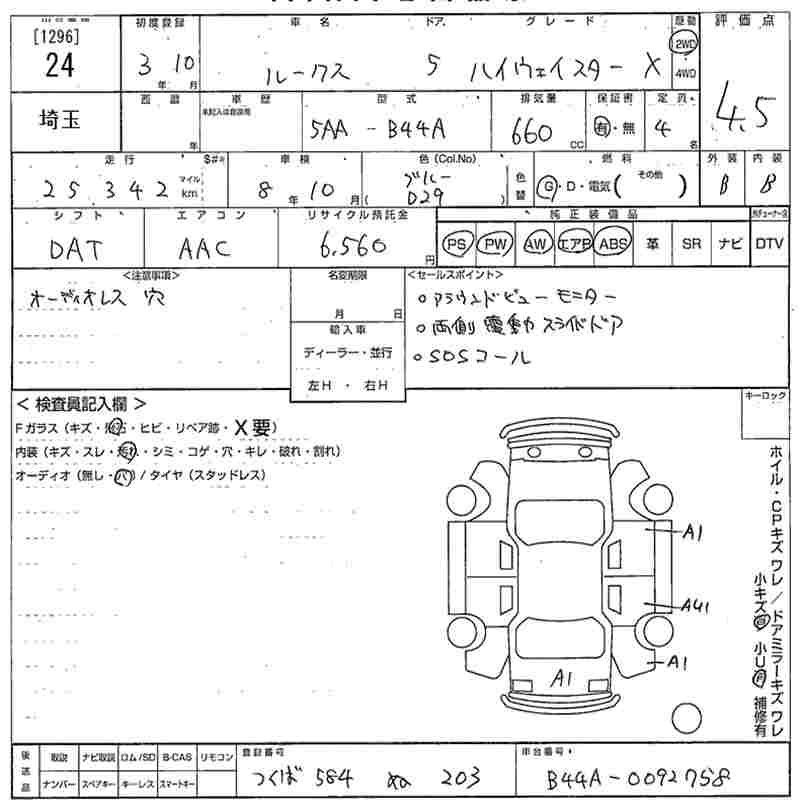 [1296]
24
埼玉
初度登録 車名 ドア グレード 原動 評価点
3年 10月 ルークス 5 ハイウェイスター X 2WD 4WD 4.5
車歴 型式 排気量 保証書 定員
未記入は自家用
年 5AA - B44A 660 CC 有・無 4名
走行 S#* 車検 色(Col.No) 燃料 外装 内装
25,342 マイル km 8年 10月 ブルー ( D29 ) 色替 G・D・電気( その他 ) B B
シフト エアコン リサイクル預託金 純正装備品
DAT AAC 6,560円 PS PW AW エアB ABS 革 SR ナビ DTV
<注意事項> 名変期限 <セールスポイント>
オーディオレス 穴
月 日
輸入車
ディーラー・並行
左H ・ 右H
○アラウンドビューモニター
○両側電動スライドドア
○SOSコール
キーロック
< 検査員記入欄 >
Fガラス(キズ・飛石・ヒビ・リペア跡・X要)
内装(キズ・スレ・汚れ・シミ・コゲ・穴・キレ・破れ・割れ)
オーディオ(無し・パ)/タイヤ(スタッドレス)
A1
AU1
A1
A1
ホイル・CPキズ ワレ / ドアミラーキズ ワレ
小キズ 小U 補修有
後送品 取説 ナビ取説 ロム/SD B-CAS リモコン
ナンバー スペアキー キーレス スマートキー
登録番号 車台番号
つくば 584 ぬ 203 B44A-0092758